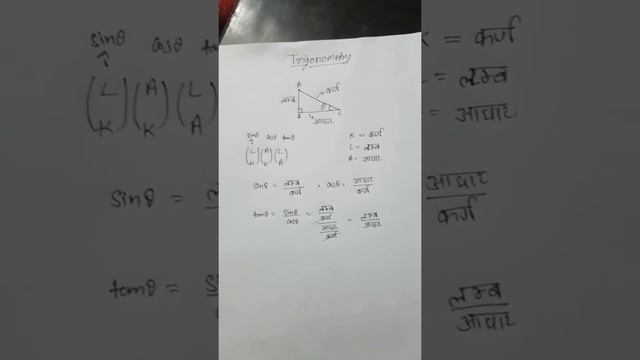 Trigonometry
A
लम्ब
कर्ण
θ
B
C
आधार
sinθ cosθ tanθ
(L/K) (A/K) (L/A)
K = कर्ण
L = लम्ब
A = आधार
sinθ = लम्ब/कर्ण , cosθ = आधार/कर्ण
tanθ = sinθ/cosθ = लम्ब/कर्ण / आधार/कर्ण = लम्ब/आधार